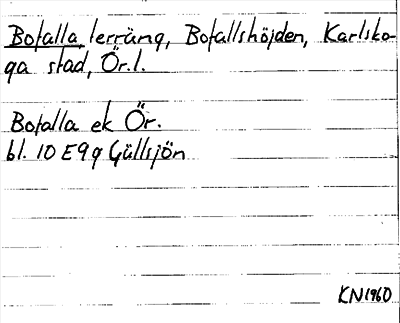 Bofalla terräng, Bofallshöjden, Karlsko-
ga stad, Ör. l.
Bofalla ek Ör.
bl. 10 E 9 g Gällsjön
KN 1960